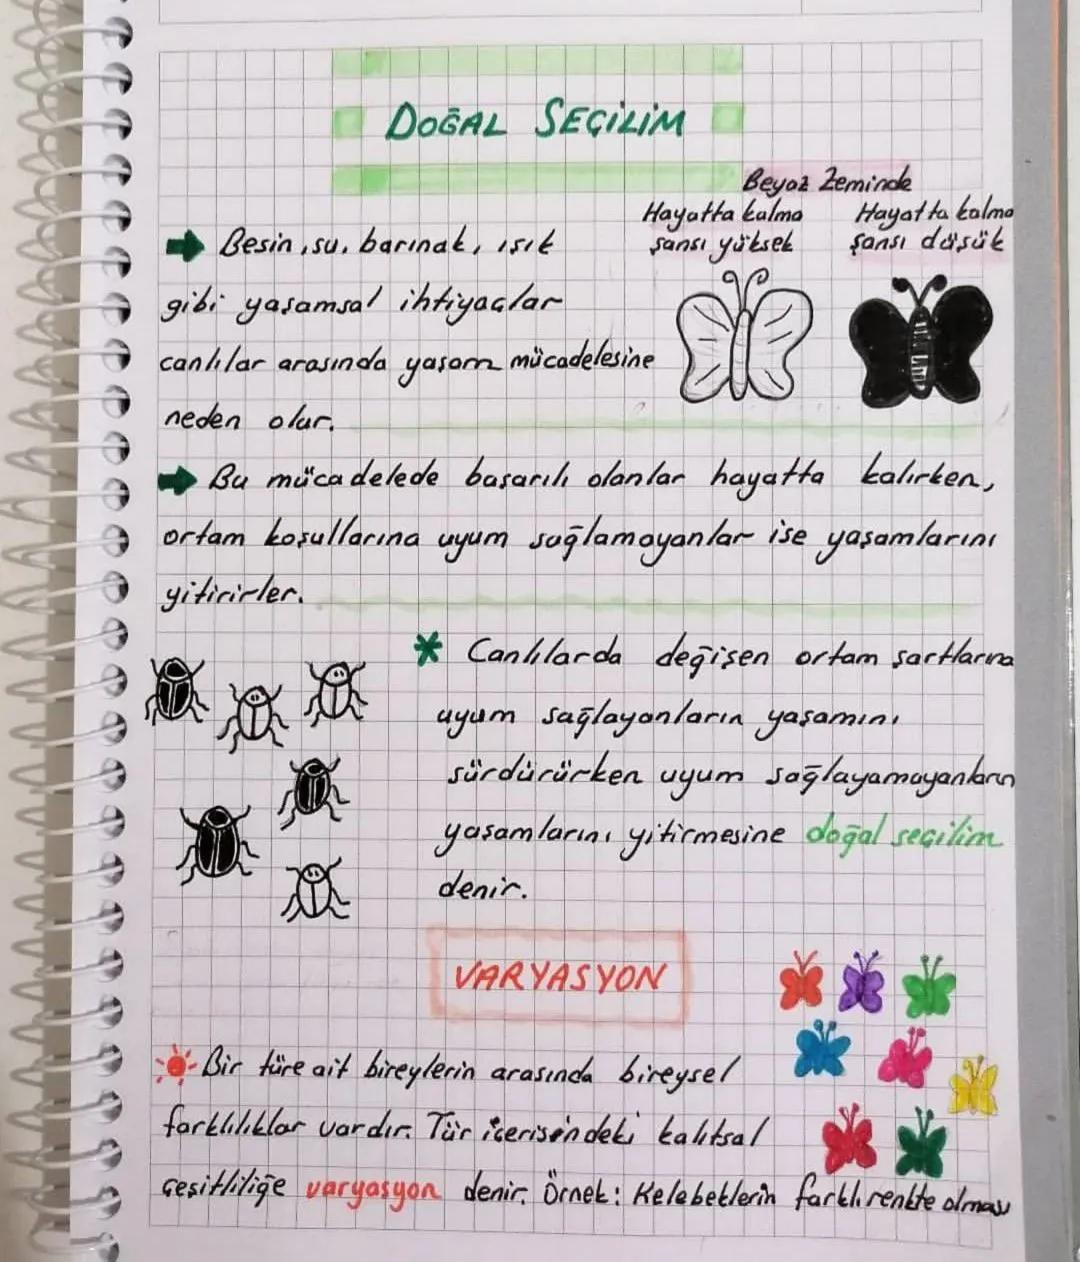 DOĞAL SEÇİLİM
Beyaz Zeminde
Hayatta kalma
şansı yüksek
Hayatta kalma
şansı düşük
Besin, su, barınak, ışık
gibi yaşamsal ihtiyaçlar
canlılar arasında yaşam mücadelesine
neden olur.
Bu mücadelede başarılı olanlar hayatta kalırken,
ortam koşullarına uyum sağlamayanlar ise yaşamlarını
yitirirler.
* Canlılarda değişen ortam şartlarına
uyum sağlayanların yaşamını
sürdürürken uyum sağlayamayanların
yaşamlarını yitirmesine doğal seçilim
denir.
VARYASYON
Bir türe ait bireylerin arasında bireysel
farklılıklar vardır. Tür içerisindeki kalıtsal
çeşitliliğe varyasyon denir. Örnek: Kelebeklerin farklı renkte olması